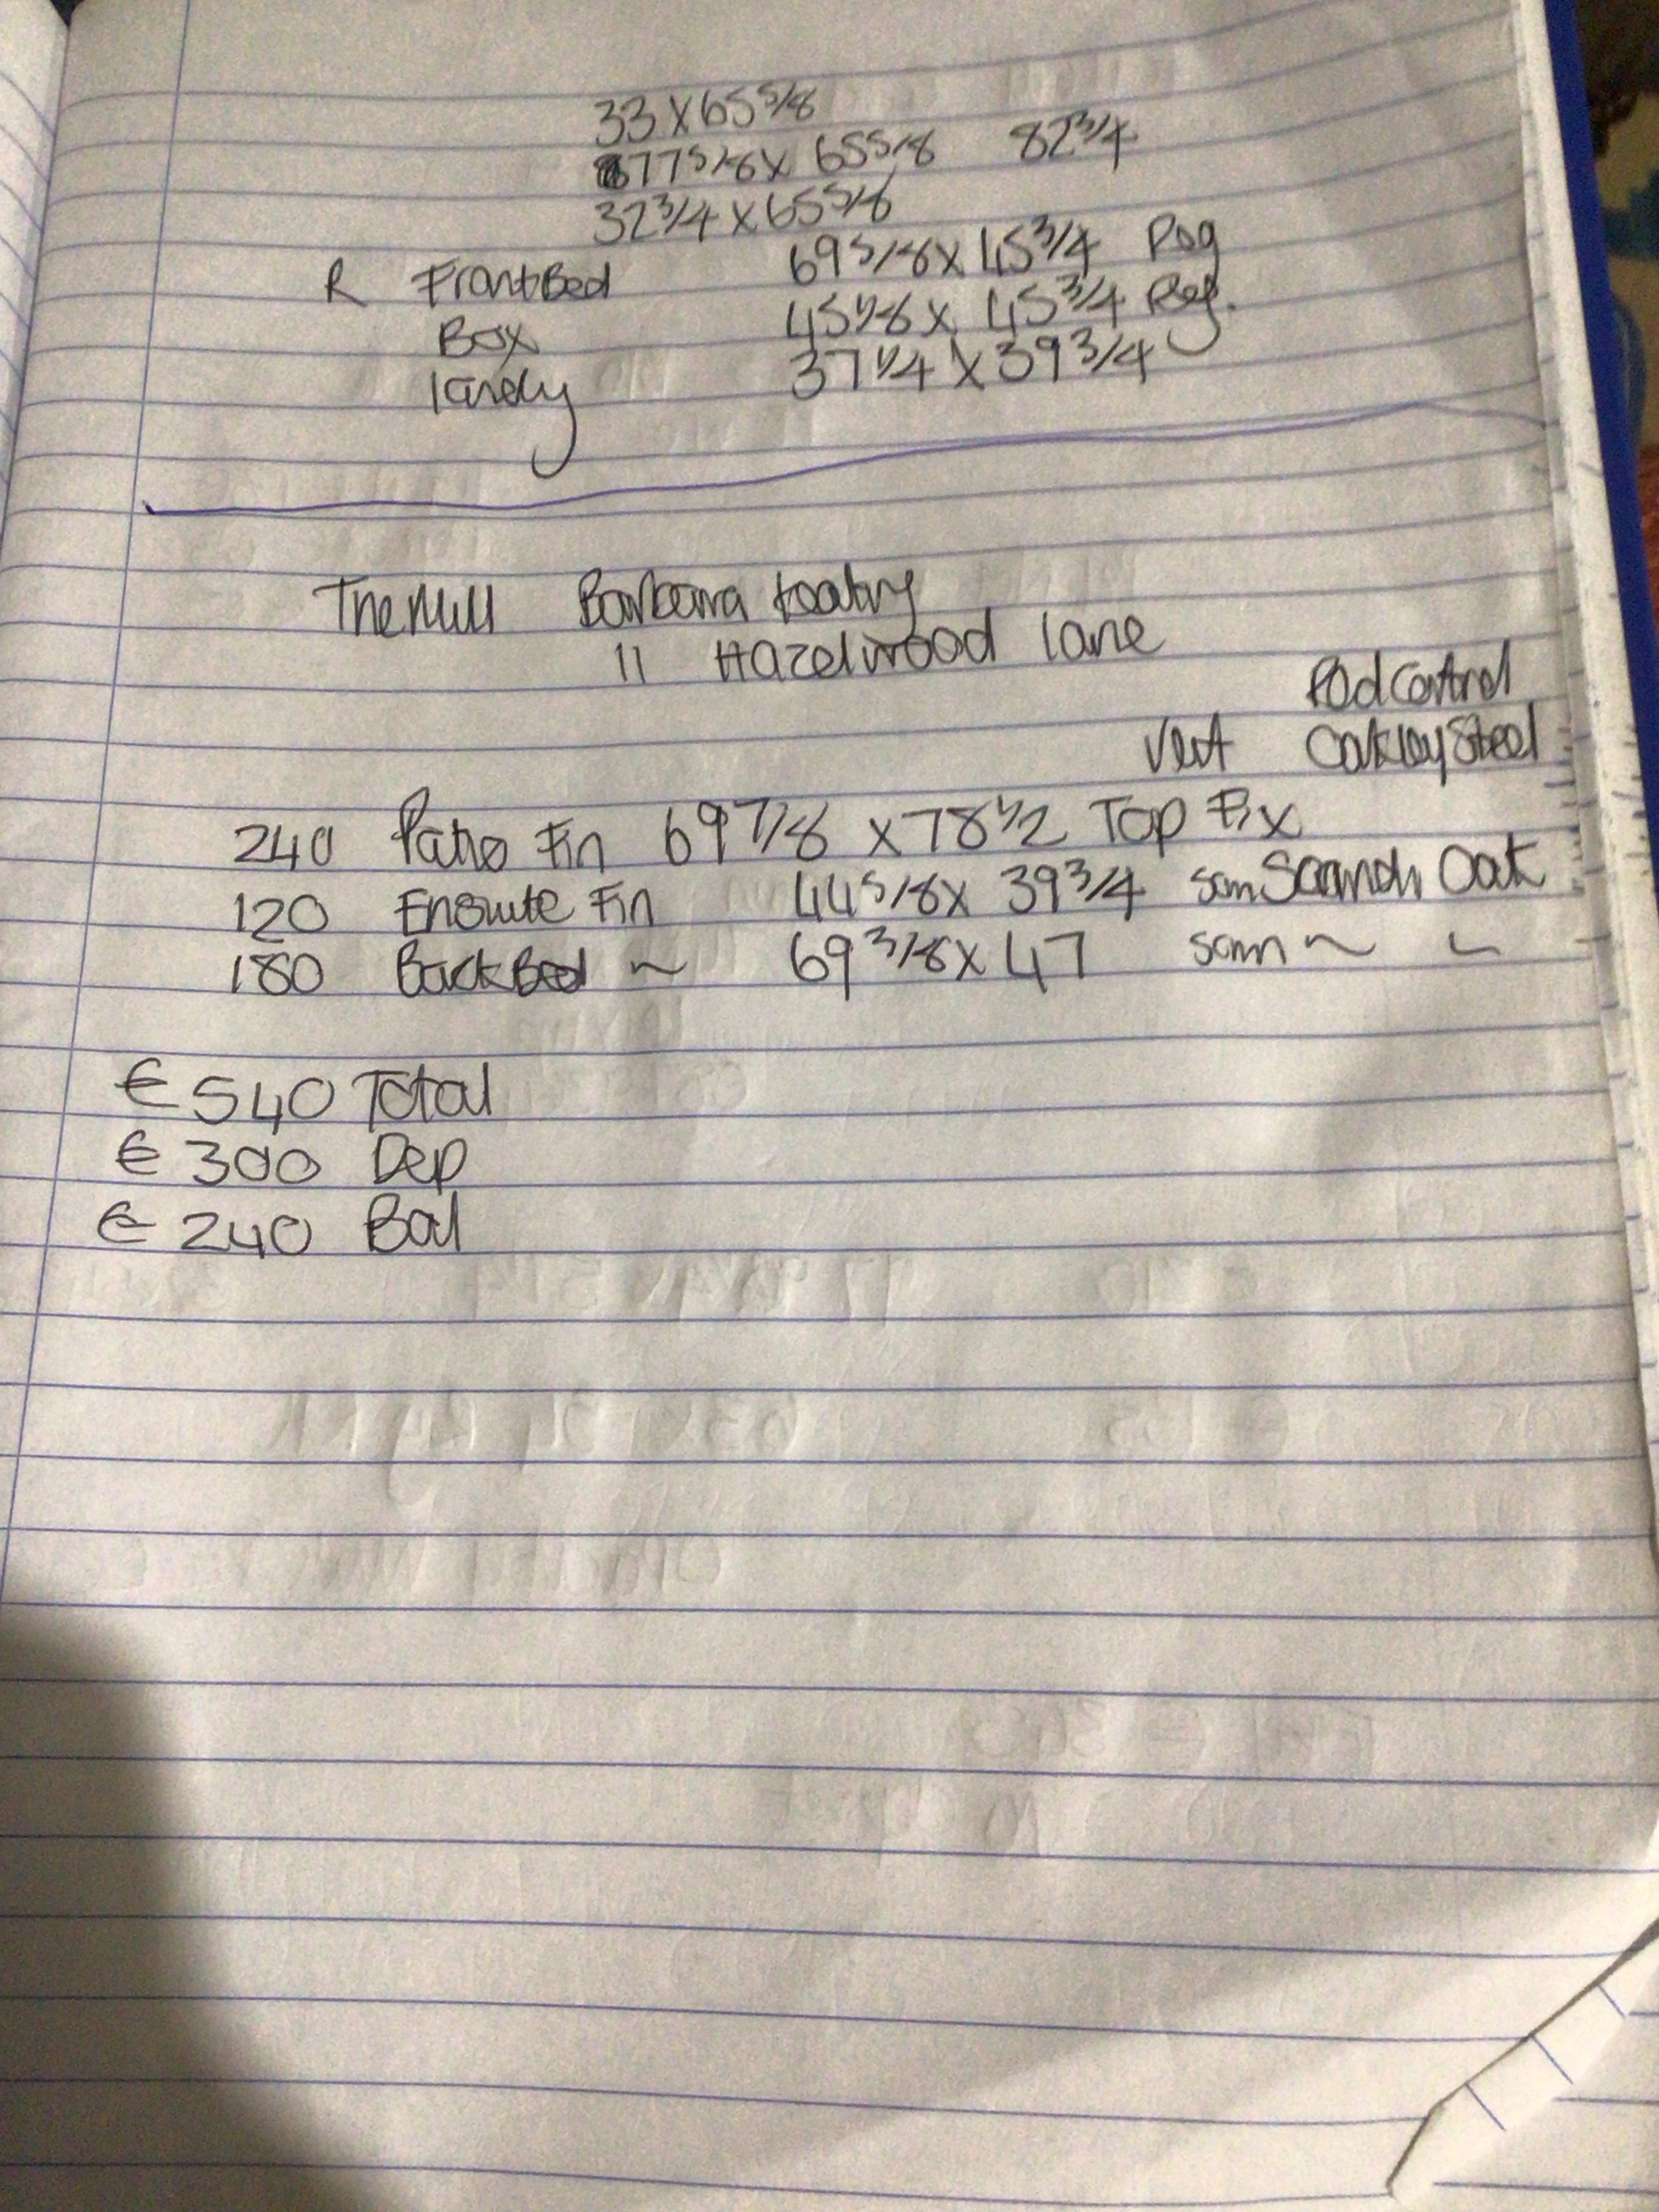 33 X 65 5/8
77 5/8 X 65 5/8 82 3/4
32 3/4 X 65 5/8
R Front Bed 69 5/8 X 45 3/4 Reg
Box 45 1/8 X 45 3/4 Reg.
37 1/4 X 39 3/4
The Mill Barbara
11 Hazelwood Lane
Rod Control
Vert Oakley Steel
240 Patio Fin 69 7/8 X 78 1/2 Top Fix
120 Ensuite Fin 44 5/8 X 39 3/4 Scandi Oak
180 Back Bed ~ 69 3/8 X 47 ~ ~
€540 Total
€300 Dep
€240 Bal